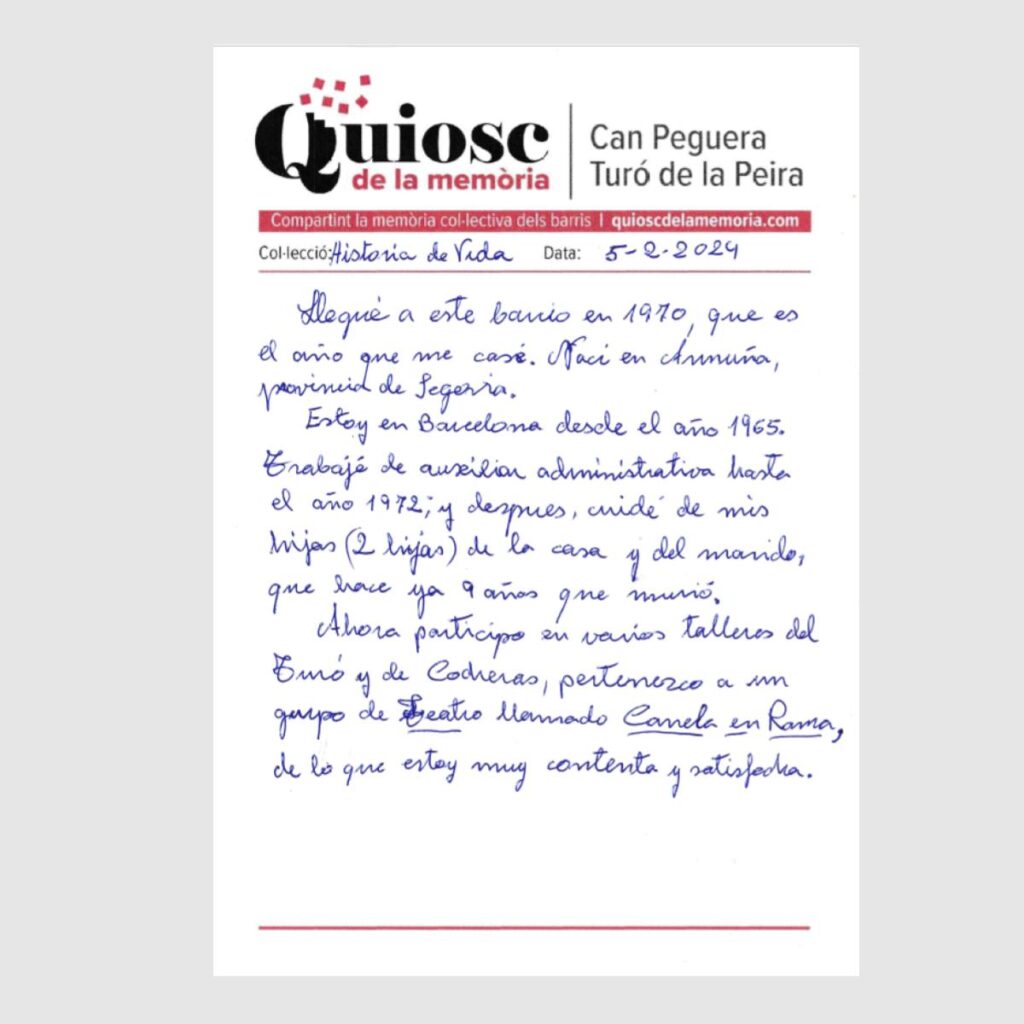 Quiosc
de la memòria
Can Peguera
Turó de la Peira
Compartint la memòria col·lectiva dels barris | quioscdelamemoria.com
Col·lecció: Historia de Vida Data: 5-2-2024
Llegué a este barrio en 1970, que es
el año que me casé. Nací en Armuña,
provincia de Segovia.
Estoy en Barcelona desde el año 1965.
Trabajé de auxiliar administrativa hasta
el año 1972; y despues, cuidé de mis
hijas (2 hijas) de la casa y del marido,
que hace ya 9 años que murió.
Ahora participo en varios talleres del
Turó y de Codreras, pertenezco a un
grupo de Teatro llamado Canela en Rama,
de lo que estoy muy contenta y satisfecha.